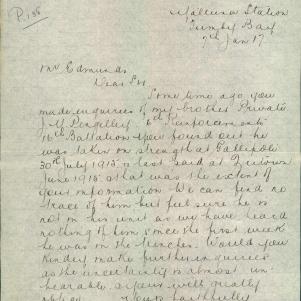 P. 135
Station
Tumby Bay
7th Jan 17
Mr Edmunds
Dear Sir
Some time ago you
made enquiries of my brother Private
J. H. Pengelly, 6th Reinforcements
16th Battalion you found out he
was taken on strength at Gallipoli
30th July 1915 & last said at
June 1915 & that was the extent of
your information We can find no
trace of him but feel sure he is
not in his unit as we have heard
nothing of him since the first week
he was in the trenches. Would you
kindly make further inquiries
as the uncertainty is almost un-
bearable, & feel well greatly
obliged Yours faithfully